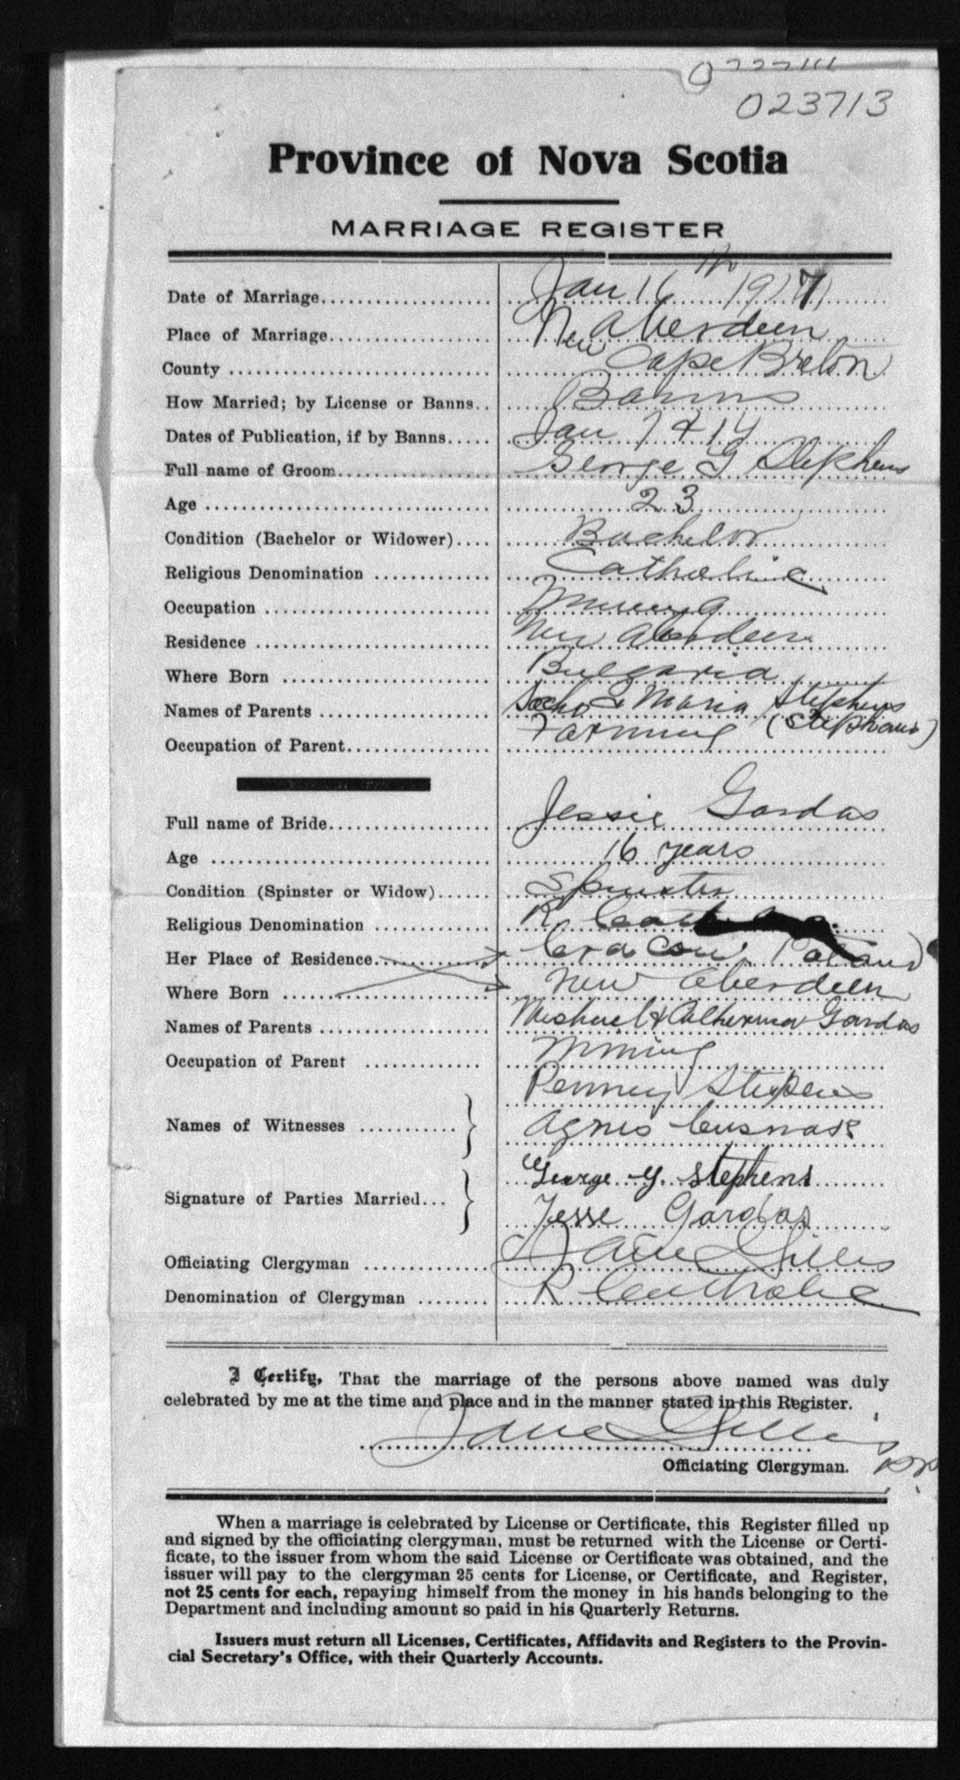 023713
Province of Nova Scotia
MARRIAGE REGISTER
Date of Marriage Jan 16th 1917
Place of Marriage New Aberdeen
County Cape Breton
How Married; by License or Banns Banns
Dates of Publication, if by Banns Jan 7 & 14
Full name of Groom George G Stephens
Age 23
Condition (Bachelor or Widower) Bachelor
Religious Denomination Catholic
Occupation Mining
Residence New Aberdeen
Where Born Bulgaria
Names of Parents & Maria Stephens
(Stephans)
Occupation of Parent Farming
Full name of Bride Jessie Gardas
Age 16 years
Condition (Spinster or Widow) Spinster
Religious Denomination R. Catholic
Her Place of Residence Cracow, Poland
Where Born New Aberdeen
Names of Parents Michael & Catherina Gardas
Occupation of Parent Mining
Names of Witnesses Penney Stephens
Agnes
Signature of Parties Married George G. Stephens
Jesse Gardas
Officiating Clergyman Gillis
Denomination of Clergyman R Catholic
I Certify, That the marriage of the persons above named was duly
celebrated by me at the time and place and in the manner stated in this Register.
Gillis
Officiating Clergyman.
When a marriage is celebrated by License or Certificate, this Register filled up
and signed by the officiating clergyman, must be returned with the License or Certi-
ficate, to the issuer from whom the said License or Certificate was obtained, and the
issuer will pay to the clergyman 25 cents for License, or Certificate, and Register,
not 25 cents for each, repaying himself from the money in his hands belonging to the
Department and including amount so paid in his Quarterly Returns.
Issuers must return all Licenses, Certificates, Affidavits and Registers to the Provin-
cial Secretary's Office, with their Quarterly Accounts.